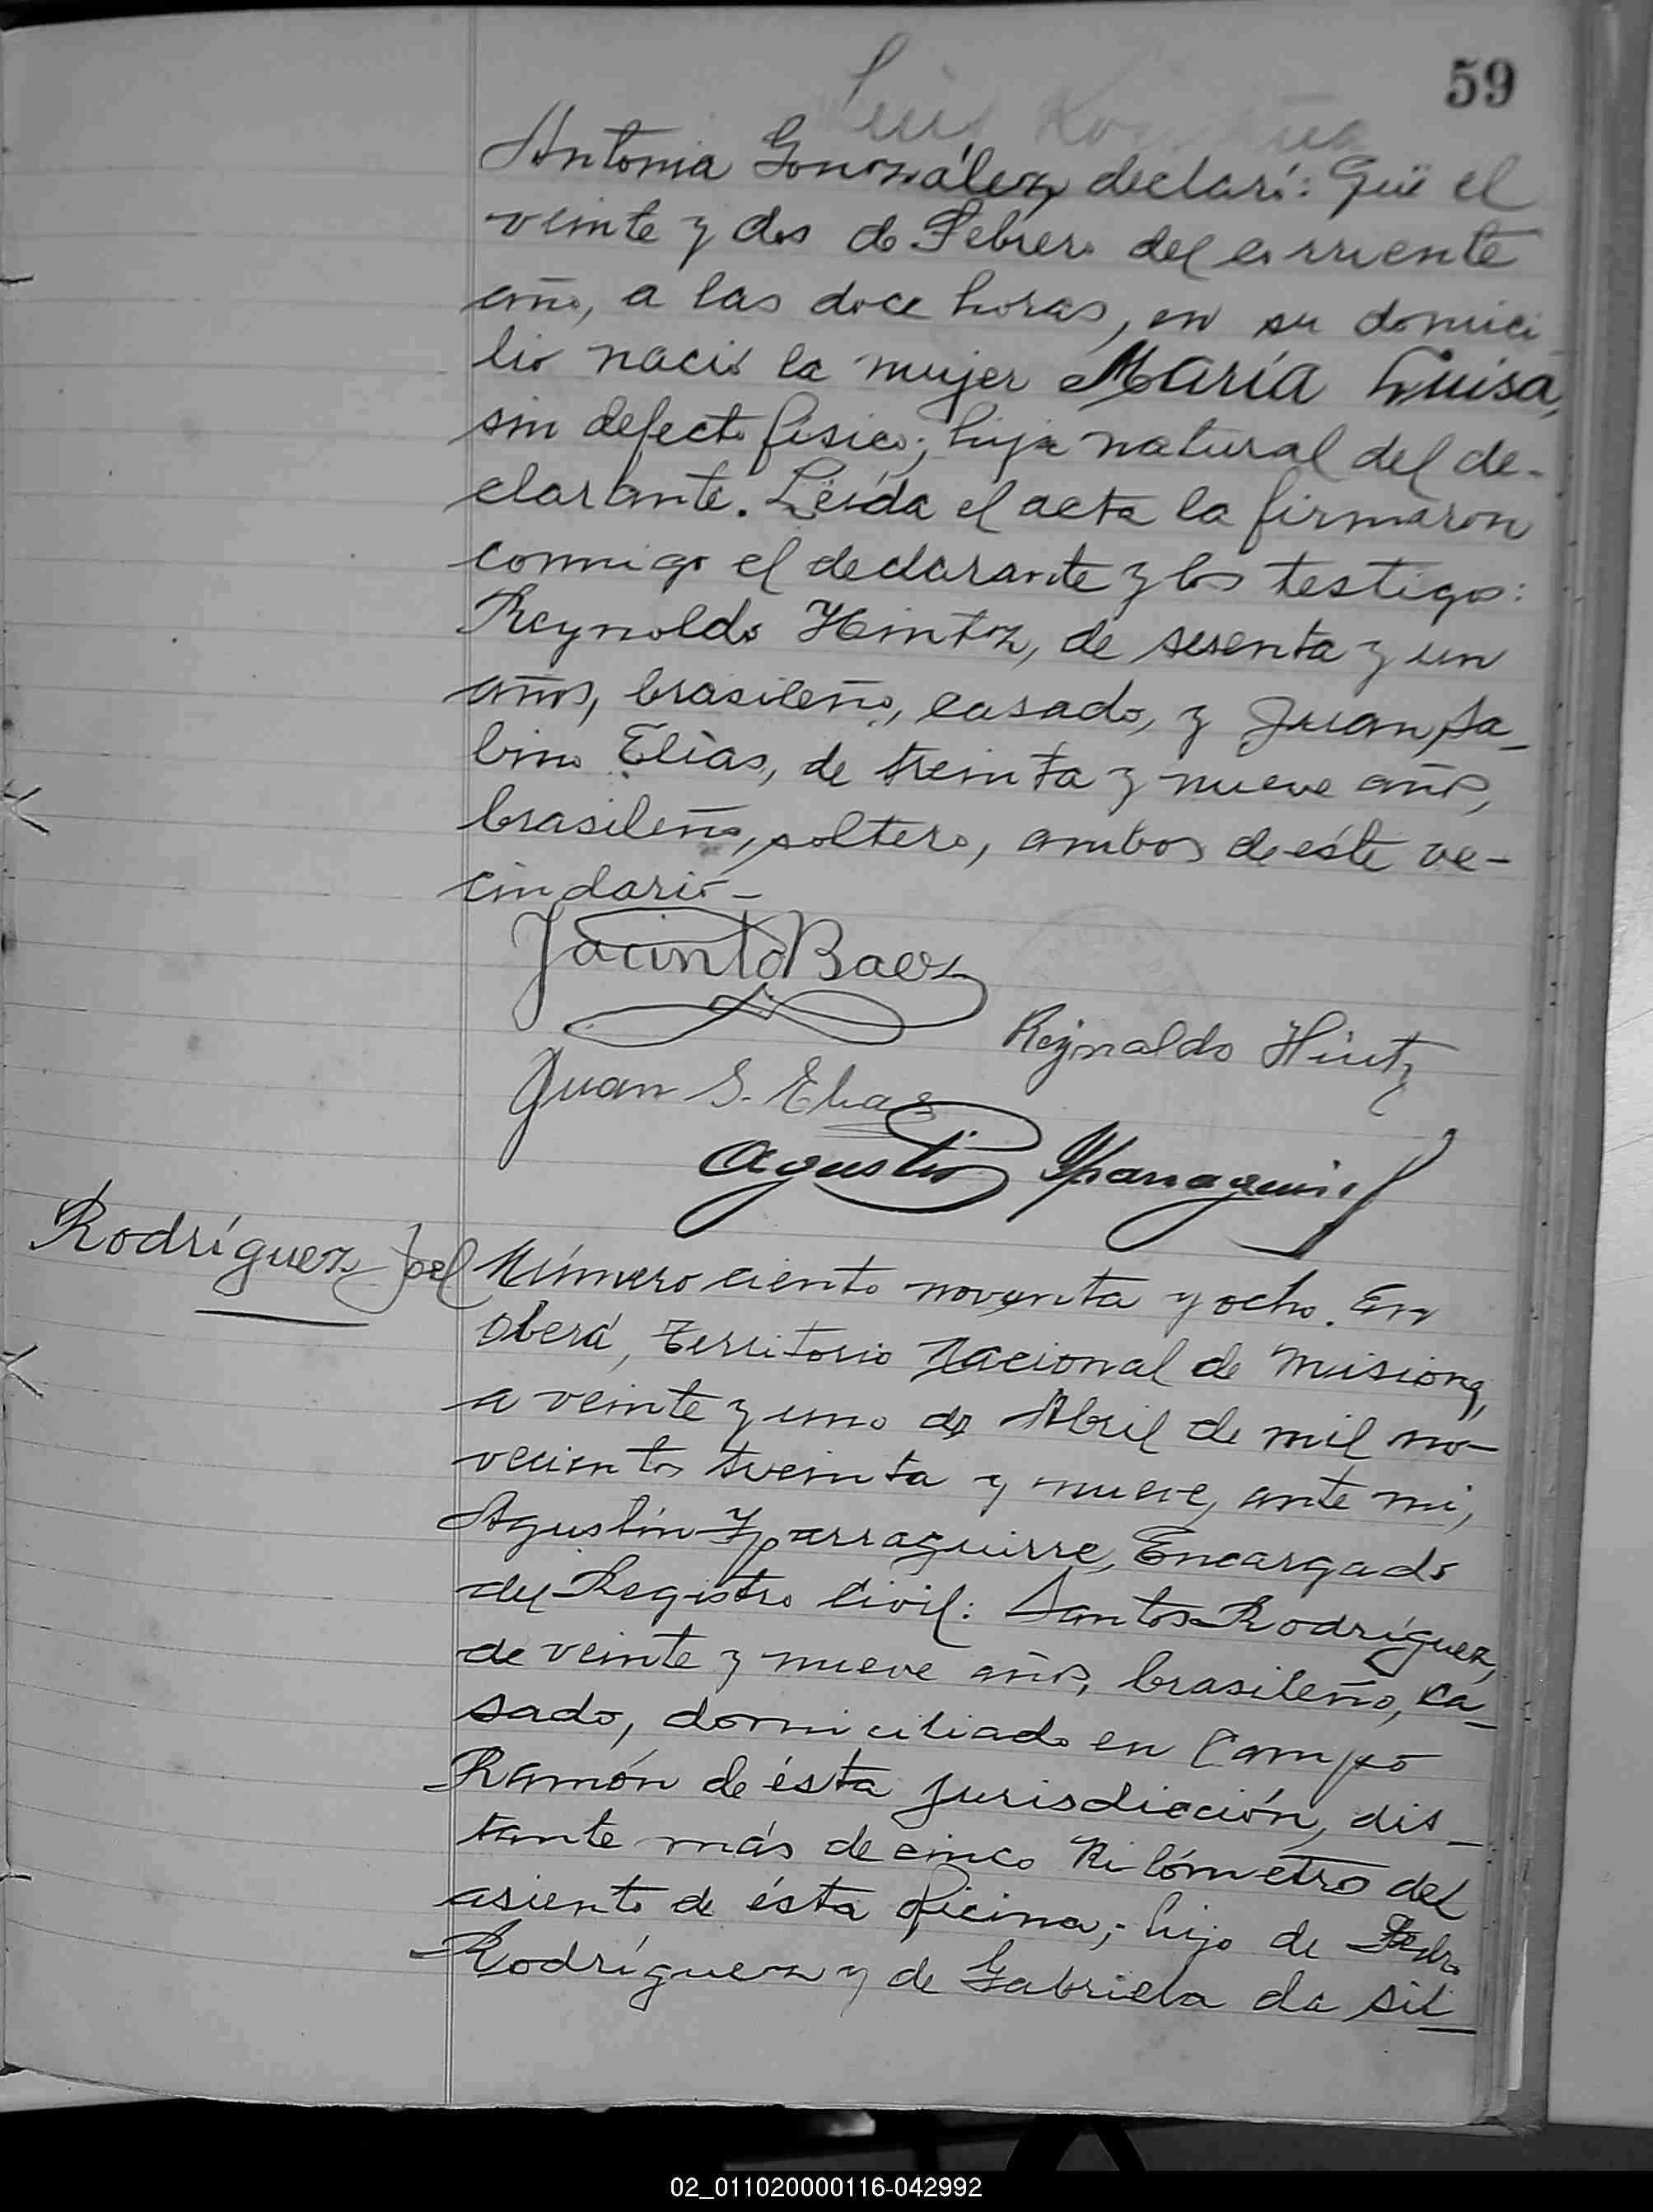 59
Luis
Antonia González, declaró: Que el
veinte y dos de Febrero del corriente
año, a las doce horas, en su domici
lio nació la mujer María Luisa,
sin defecto físico; hija natural del de-
clarante. Leída el acta la firmaron
conmigo el declarante y los testigos:
Reynoldo Hintz, de sesenta y un
años, brasileño, casado, y Juan Sa-
bino Elías, de treinta y nueve años,
brasileño, soltero, ambos de éste ve-
cindario-
Jacinto Baez
Reynaldo Hintz
Juan S. Elias
Agustin Yparraguirre
Rodríguez Joel
Número ciento noventa y ocho. En
Oberá, Territorio Nacional de Misiones,
a veinte y uno de Abril de mil no-
vecientos treinta y nueve, ante mi,
Agustín Yparraguirre, Encargado
del Registro Civil: Santos Rodríguez,
de veinte y nueve años, brasileño, ca-
sado, domiciliado en Campo
Ramón de ésta jurisdicción, dis-
tante más de cinco Kilómetro del
asiento de ésta oficina; hijo de Pedro
Rodríguez y de Gabriela da sil-
02_011020000116-042992